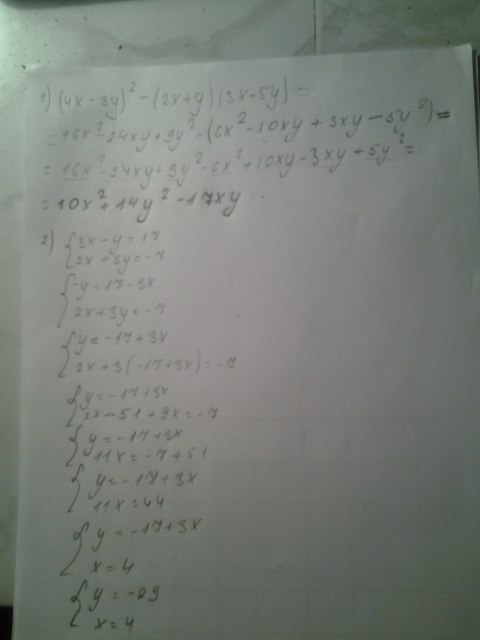 1) (4x-3y)²-(2x+y)(3x-5y)=
=16x²-24xy+9y²-(6x²-10xy+3xy-5y²)=
=16x²-24xy+9y²-6x²+10xy-3xy+5y²=
=10x²+14y²-17xy
2) {3x-y=17
2x+3y=-7
{-y=17-3x
2x+3y=-7
{y=-17+3x
2x+3(-17+3x)=-7
{y=-17+3x
2x-51+9x=-7
{y=-17+3x
11x=-7+51
{y=-17+3x
11x=44
{y=-17+3x
x=4
{y=-29
x=4